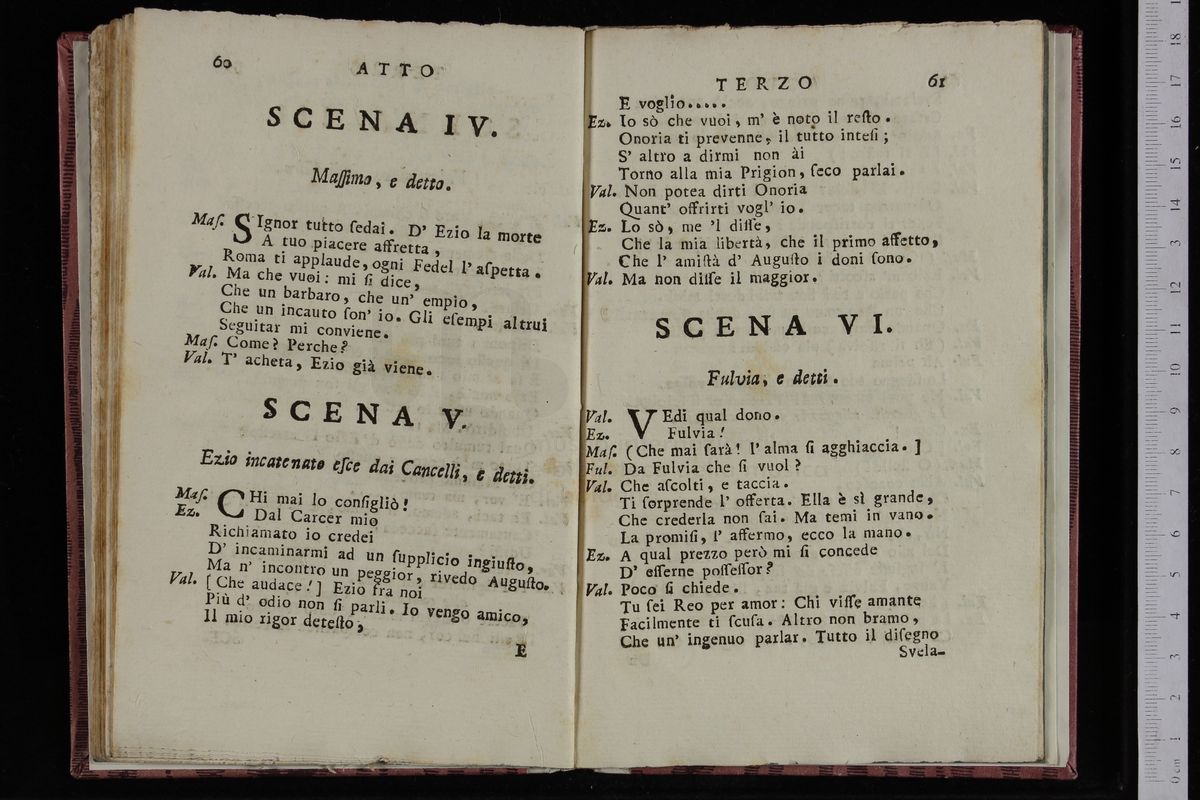 60
ATTO
SCENA IV.
Maſſimo, e detto.
Maſ. SIgnor tutto ſedai. D' Ezio la morte
A tuo piacere affretta,
Roma ti applaude, ogni Fedel l' aſpetta.
Val. Ma che vuoi: mi ſi dice,
Che un barbaro, che un' empio,
Che un incauto ſon' io. Gli eſempi altrui
Seguitar mi conviene.
Maſ. Come? Perche?
Val. T' acheta, Ezio già viene.
SCENA V.
Ezio incatenato eſce dai Cancelli, e detti.
Maſ. CHi mai lo conſigliò!
Ez. Dal Carcer mio
Richiamato io credei
D' incaminarmi ad un ſupplicio ingiuſto,
Ma n' incontro un peggior, rivedo Auguſto.
Val. [Che audace!] Ezio fra noi
Più d' odio non ſi parli. Io vengo amico,
Il mio rigor deteſto,
E
TERZO
61
E voglio.....
Ez. Io sò che vuoi, m' è noto il reſto.
Onoria ti prevenne, il tutto inteſi;
S' altro a dirmi non ài
Torno alla mia Prigion, ſeco parlai.
Val. Non potea dirti Onoria
Quant' offrirti vogl' io.
Ez. Lo sò, me 'l diſſe,
Che la mia libertà, che il primo affetto,
Che l' amiſtà d' Auguſto i doni ſono.
Val. Ma non diſſe il maggior.
SCENA VI.
Fulvia, e detti.
Val. VEdi qual dono.
Ez. Fulvia!
Maſ. (Che mai ſarà! l' alma ſi agghiaccia.]
Ful. Da Fulvia che ſi vuol?
Val. Che aſcolti, e taccia.
Ti ſorprende l' offerta. Ella è sì grande,
Che crederla non ſai. Ma temi in vano.
La promiſi, l' affermo, ecco la mano.
Ez. A qual prezzo però mi ſi concede
D' eſſerne poſſeſſor?
Val. Poco ſi chiede.
Tu ſei Reo per amor: Chi viſſe amante
Facilmente ti ſcuſa. Altro non bramo,
Che un' ingenuo parlar. Tutto il diſegno
Svela-
0cm 1 2 3 4 5 6 7 8 9 10 11 12 13 14 15 16 17 18